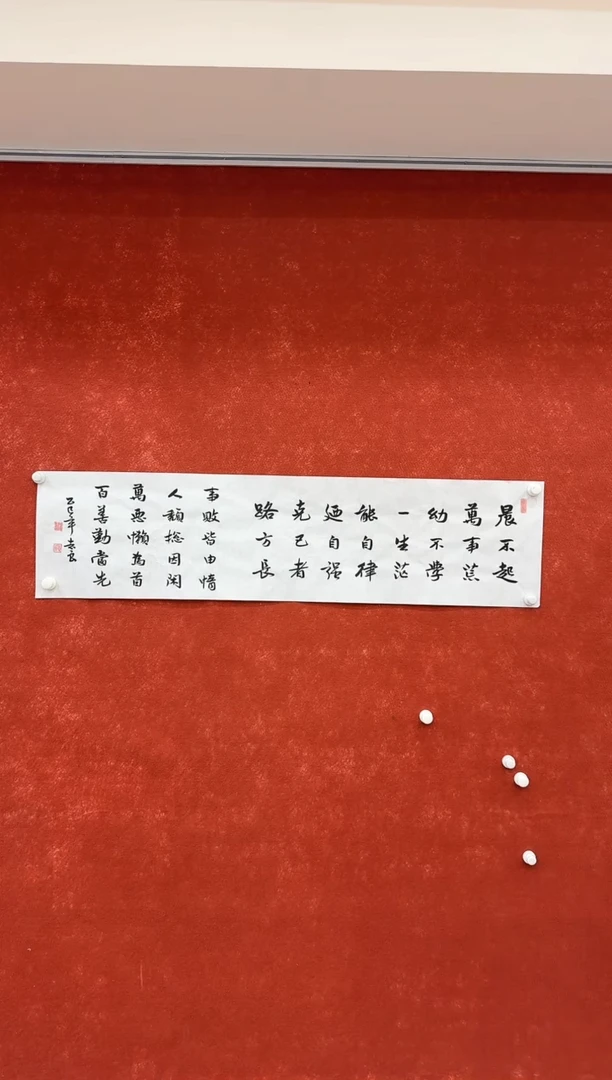 晨不起
萬事荒
幼不學
一生茫
能自律
廼自强
克己者
路方長
事敗皆由惰
人頹捴因閑
萬惡懶為首
百善勤當先
乙巳年